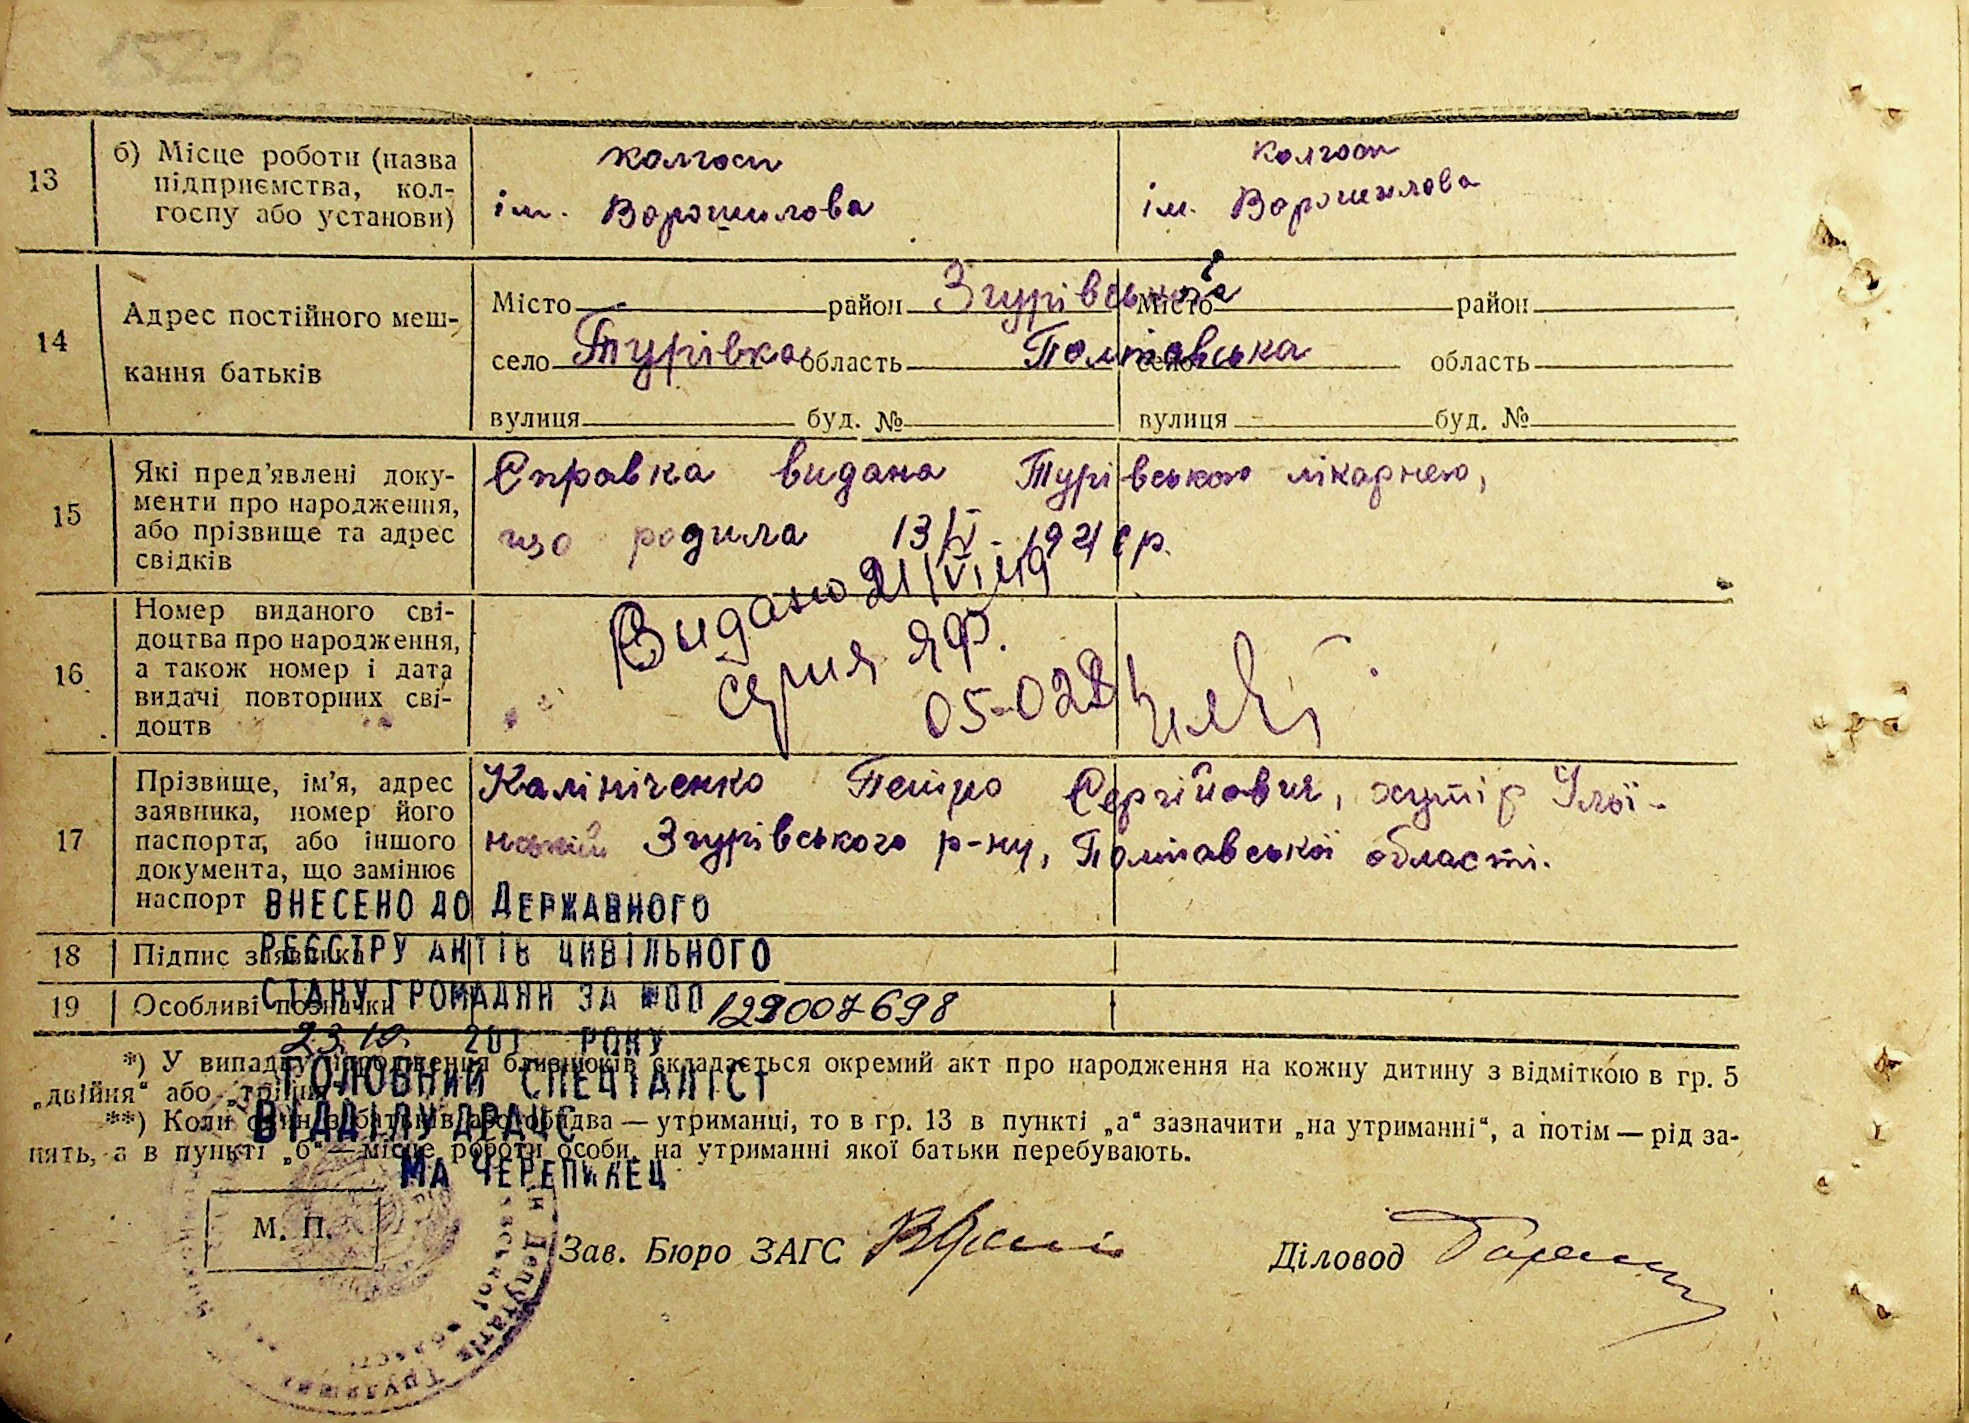 152-6
13 б) Місце роботи (назва підприємства, колгоспу або установи)
колгосп
ім. Ворошилова
колгосп
ім. Ворошилова
14 Адрес постійного мешкання батьків
Місто район Згурівської
село Турівка область Полтавська
вулиця буд. №
Місто район
село область
вулиця буд. №
15 Які пред'явлені документи про народження, або прізвище та адрес свідків
Справка видана Турівською лікарнею,
що родила 13/V
16 Номер виданого свідоцтва про народження, а також номер і дата видачі повторних свідоцтв
Видано 21/VI 49
серия ЯФ.
05-028
17 Прізвище, ім'я, адрес заявника, номер його паспорта, або іншого документа, що замінює паспорт
Калініченко Петро Сергійович, хутір
Згурівського р-ну, Полтавської області.
18 Підпис заявника
19 Особливі позначки
ВНЕСЕНО ДО ДЕРЖАВНОГО
РЕЄСТРУ АКТІВ ЦИВІЛЬНОГО
СТАНУ ГРОМАДЯН ЗА №00 129007698
23.10. 201 РОКУ
ГОЛОВНИЙ СПЕЦІАЛІСТ
ВІДДІЛУ ДРАЦС
МА ЧЕРЕПИНЕЦ
*) У випадку народження близнюків складається окремий акт про народження на кожну дитину з відміткою в гр. 5
„двійня“ або „трійня“
**) Коли один з батьків або обидва — утриманці, то в гр. 13 в пункті „а“ зазначити „на утриманні“, а потім — рід за-
нять, а в пункті „б“ — місце роботи особи, на утриманні якої батьки перебувають.
М. П.
Зав. Бюро ЗАГС
Діловод
Депутатів Трудящих